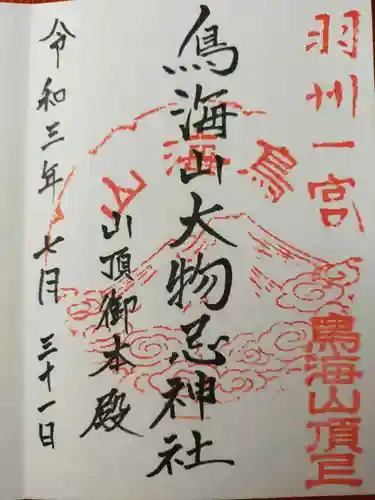 羽州一宮
鳥海山頂
鳥海山
鳥海山大物忌神社
山頂御本殿
令和三年七月三十一日